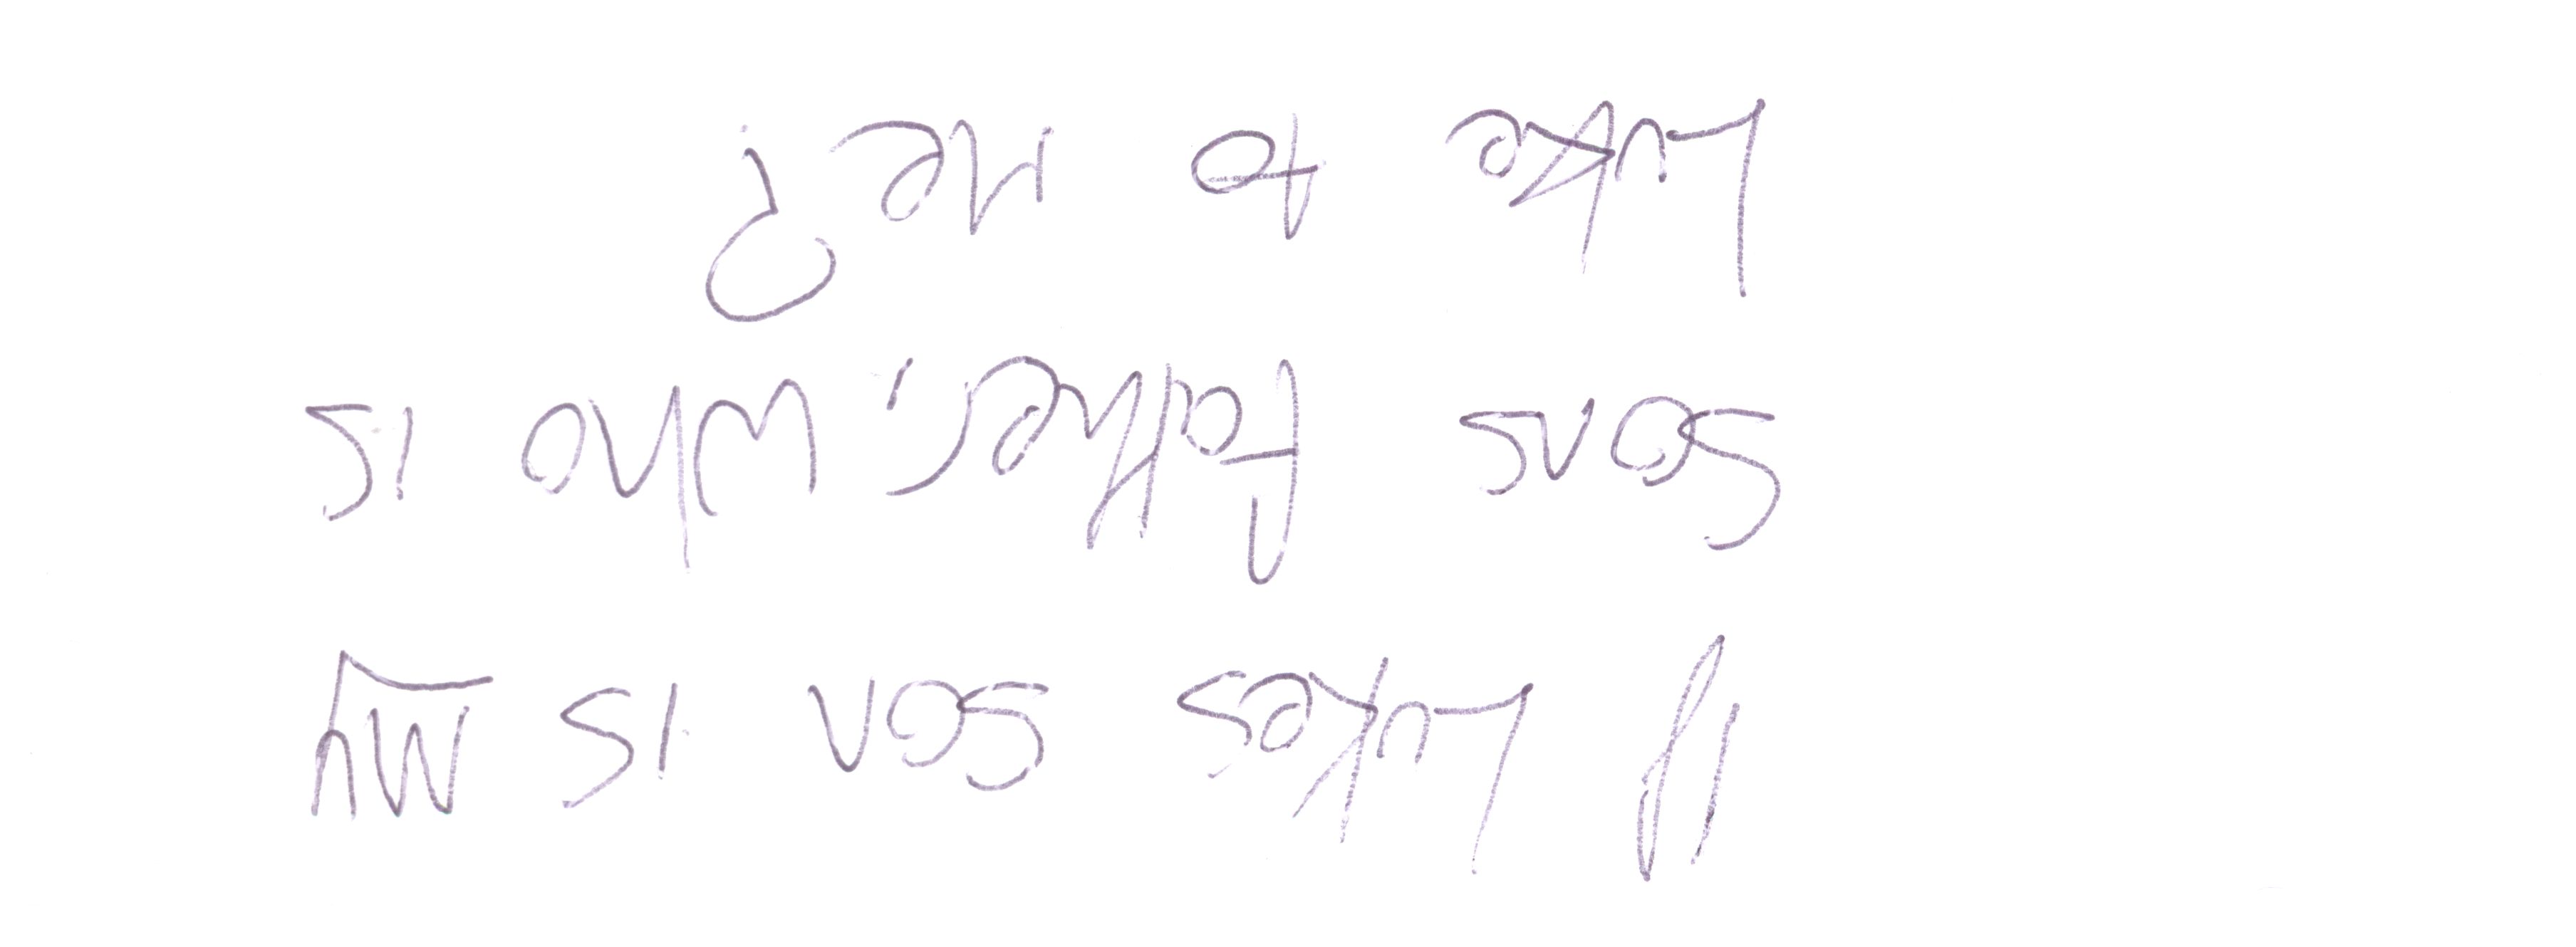 If Lukes son is my
sons father, who is
Luke to me?